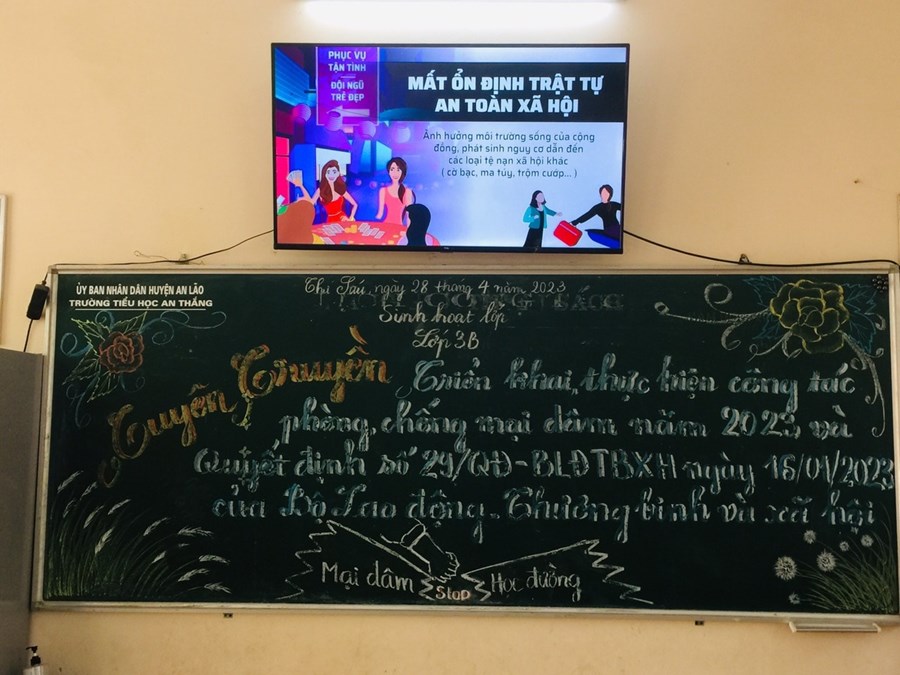 PHỤC VỤ
TẬN TÌNH
ĐỘI NGŨ
TRẺ ĐẸP
MẤT ỔN ĐỊNH TRẬT TỰ
AN TOÀN XÃ HỘI
Ảnh hưởng môi trường sống của cộng
đồng, phát sinh nguy cơ dẫn đến
các loại tệ nạn xã hội khác
( cờ bạc, ma túy, trộm cướp... )
ỦY BAN NHÂN DÂN HUYỆN AN LÃO
TRƯỜNG TIỂU HỌC AN THẮNG
Thứ Sáu, ngày 28 tháng 4 năm 2023
Sinh hoạt lớp
Lớp 3B
Tuyên Truyền Triển khai, thực hiện công tác
phòng, chống mại dâm năm 2023 và
Quyết định số 29/QĐ-BLĐTBXH ngày 16/01/2023
của Bộ Lao động - Thương binh và xã hội
Mại dâm Stop Học đường